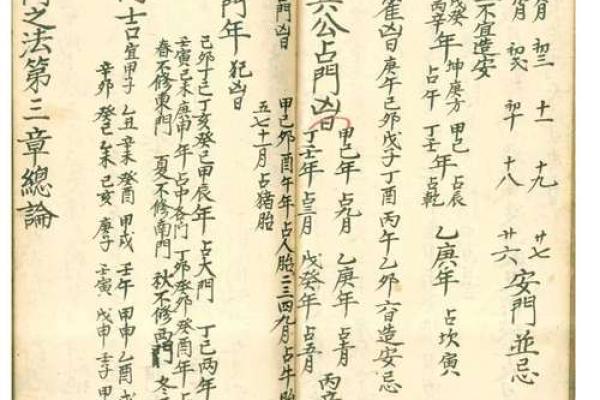 月 初三 十一 十九 廿七
月 初十 十八 廿六 安門並忌
不宜造安
戊癸 年 坤庚方 甲己 年 占辰 乙庚年 占坎寅
丙辛 占午 丁壬 占乾
雀凶日 庚午己卯戊子丁酉 丙午乙卯 六日造安忌
六公占門凶日 甲己年 占九月 乙庚年 占
丁壬年 占三月 戊癸年 占五月 丙辛
門凶日 甲己卯酉午年占人胎二三四九月占牛胎
五七十一月占猪胎
門年 犯凶日
丁亥癸巳甲辰年 占大門 丁巳两年
壬寅己未庚申年 丁卯癸卯癸酉年占
春不修東門 夏不修南門 秋不修西門 冬不
吉日宜甲子 乙丑 辛未 癸酉 甲戌 壬午 甲申 乙酉 戊
辛卯 癸巳 乙未 己亥 庚子 壬寅 戊申 壬子 甲
之法第三章總論